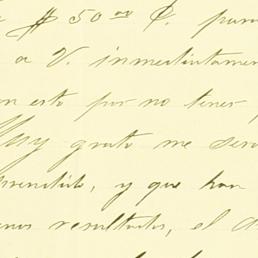 $50 00 C. para
a V. inmediatamen
en esto por no tener
Muy grato me ser
prendido, y que han
enos resultados, el